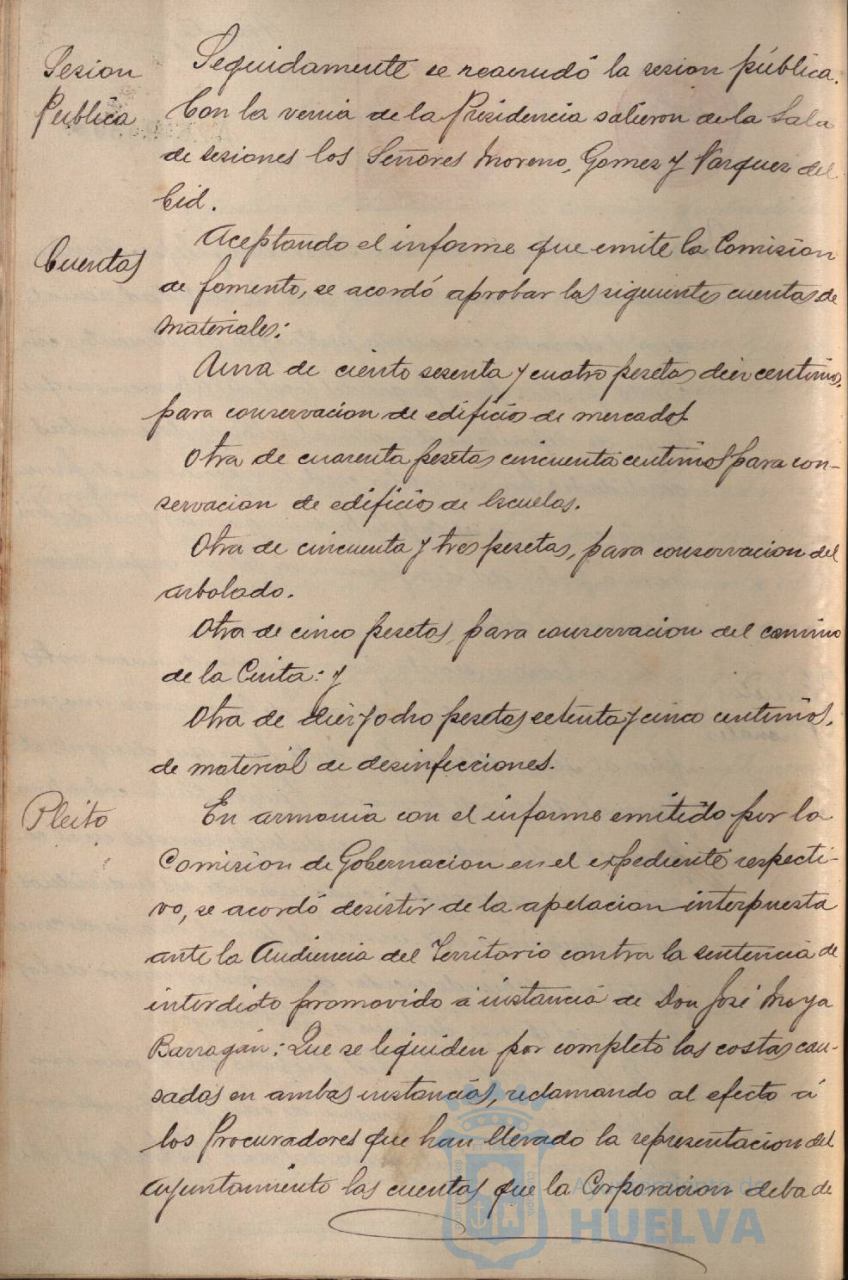 Sesion
Publica
Seguidamente se reanudó la sesion pública.
Con la venia de la Presidencia salieron de la Sala
de sesiones los Señores Moreno, Gomez y Vazquez del
Cid.
Cuentas
Aceptando el informe que emite la Comision
de fomento, se acordó aprobar las siguientes cuentas de
materiales:
Una de ciento sesenta y cuatro pesetas diez centimos,
para conservacion de edificios de mercados.
Otra de cuarenta pesetas cincuenta centimos para con-
servacion de edificios de Escuelas.
Otra de cincuenta y tres pesetas, para conservacion del
arbolado.
Otra de cinco pesetas para conservacion del camino
de la Cinta: y
Otra de diez y ocho pesetas setenta y cinco centimos,
de material de desinfecciones.
Pleito
En armonia con el informe emitido por la
Comision de Gobernacion en el expediente respecti-
vo, se acordó desistir de la apelacion interpuesta
ante la Audiencia del Territorio contra la sentencia de
interdicto promovido á instancia de Don José Moya
Barragán: Que se liquiden por completo las costas cau-
sadas en ambas instancias, reclamando al efecto á
los Procuradores que han llevado la representacion del
Ayuntamiento las cuentas que la Corporacion deba de
Ayuntamiento de
HUELVA